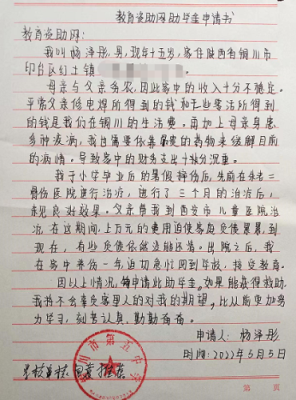 教育资助网助学金申请书
教育资助网:
我叫杨泽彤,男,现年十五岁,家住陕西省铜川市
印台区们土镇
母亲与父亲务农,因此家中的收入十分不稳定。
平常父亲低电焊所得到的钱和干些零活所得到
的钱是我们在铜川的生活费。再加上母亲身患
多种疾病,我自需要依靠昂贵的药物来缓解目前
的病情。导致家中的财务支出十分沉重。
我于小学毕业后的暑假摔伤后,先前在
骨伤医院进行治疗,进行了三个月的治疗后,
未见良好效果。父亲带我到西安市儿童医院治
疗,在这期间,上万元的费用迫使家里负债累累,到
现在,有些负债依然没能还清。出院之后,我
在家中养伤一年,迫切急忙回到学校,接受教育。
因以上情况,特申请此助学金。如果能获得资助,
我将不会辜负家里人的对我的期望,比从前更加努
力学习,刻苦认真,勤勤奋奋。
申请人:杨泽彤
时间:2022年5月5日
铜川市第五中学